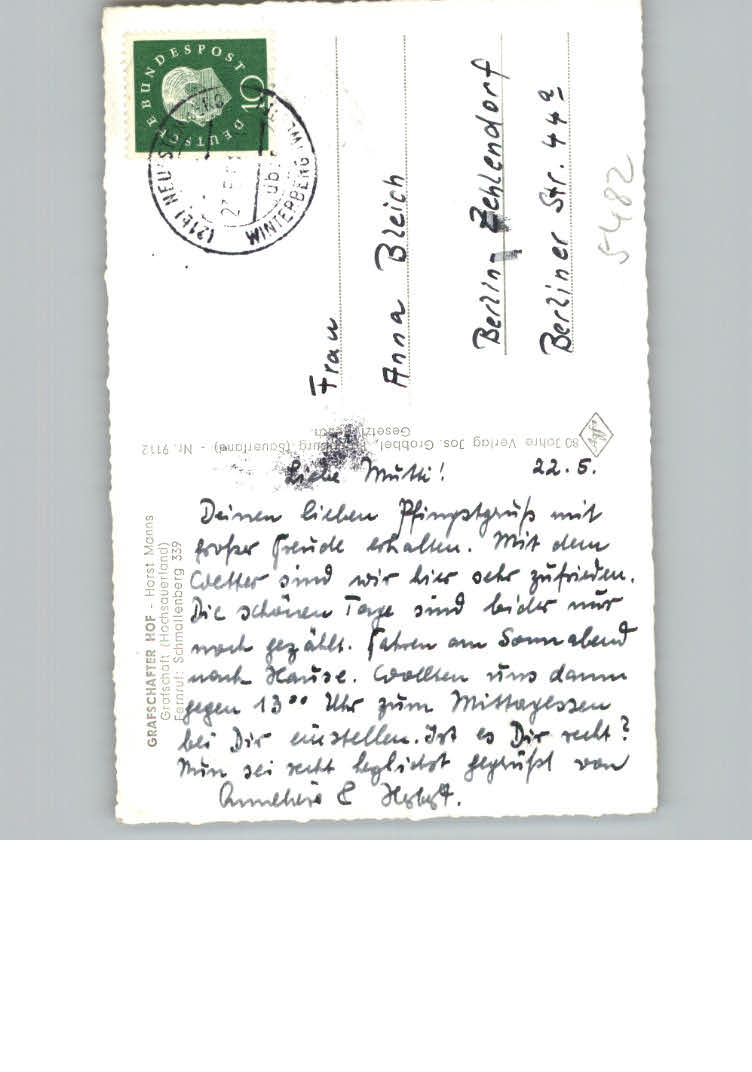 Liebe Mutti! 22.5.
Deinen lieben Pfingstgruß mit
großer Freude erhalten. Mit dem
Wetter sind wir hier sehr zufrieden.
Die schönen Tage sind leider nur
noch gezählt. Fahren am Sonnabend
nach Hause. Wollten uns dann
gegen 13⁰⁰ Uhr zum Mittagessen
bei Dir einstellen. Ist es Dir recht?
Nun sei recht herzlichst gegrüßt von
Annelise &
Frau
Anna Bleich
Berlin-Zehlendorf
Berliner Str. 44a
5482
DEUTSCHE BUNDESPOST
10
(21b)
WINTERBERG
GRAFSCHAFTER HOF - Horst Manns
Grafschaft (Hochsauerland)
Fernruf: Schmallenberg 339
80 Jahre Verlag Jos. Grobbel, (Sauerland) - Nr. 9112
Gesetzl.
Agfa